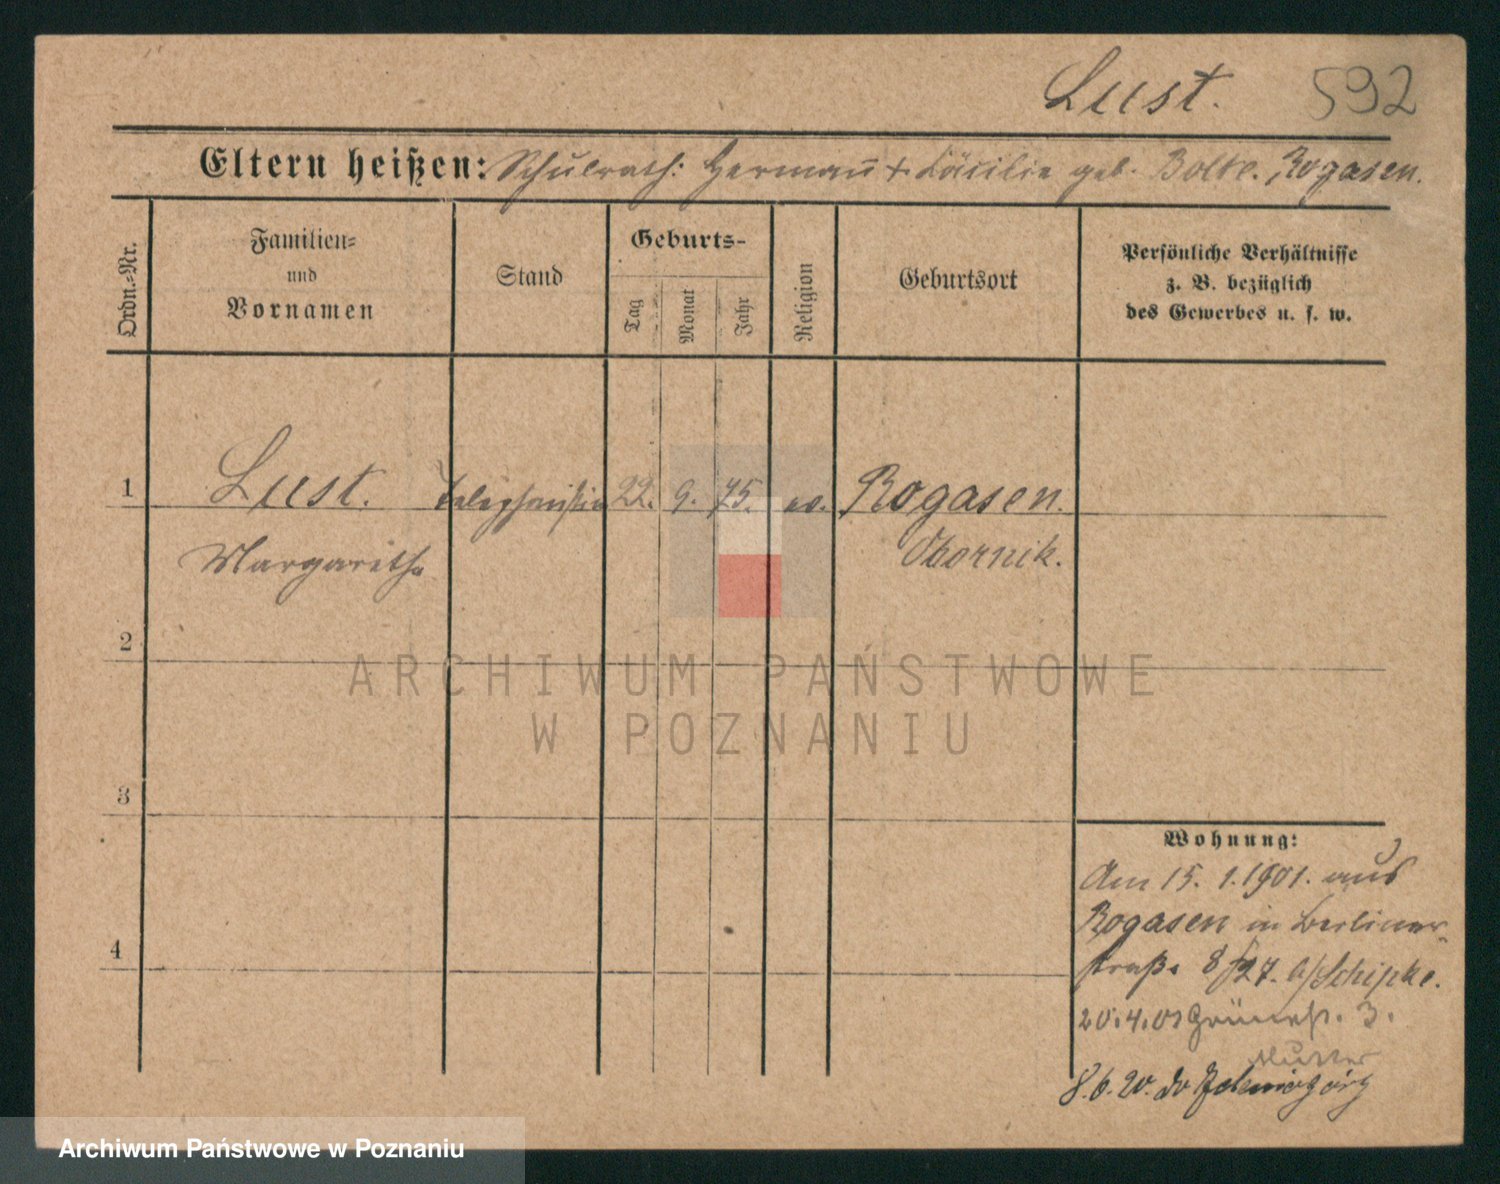 Lust. 592
Eltern heißen: Schulrath: Hermann + Cäcilie geb. Bolte. Rogasen.
Ordn.-Nr.
Familien-
und
Vornamen
Stand
Geburts-
Tag
Monat
Jahr
Religion
Geburtsort
Persönliche Verhältnisse
z. B. bezüglich
des Gewerbes u. s. w.
1 Lust. Telephonistin 22. 9. 75. ev. Rogasen.
Margarethe Obornik.
2
3
4
ARCHIWUM PAŃSTWOWE
W POZNANIU
Wohnung:
Am 15. 1. 1901. aus
Rogasen in Berliner-
straße 8/27. b/Schipke.
20.4.01 Grünestr. 3.
Mutter
8.6.20. do
Archiwum Państwowe w Poznaniu